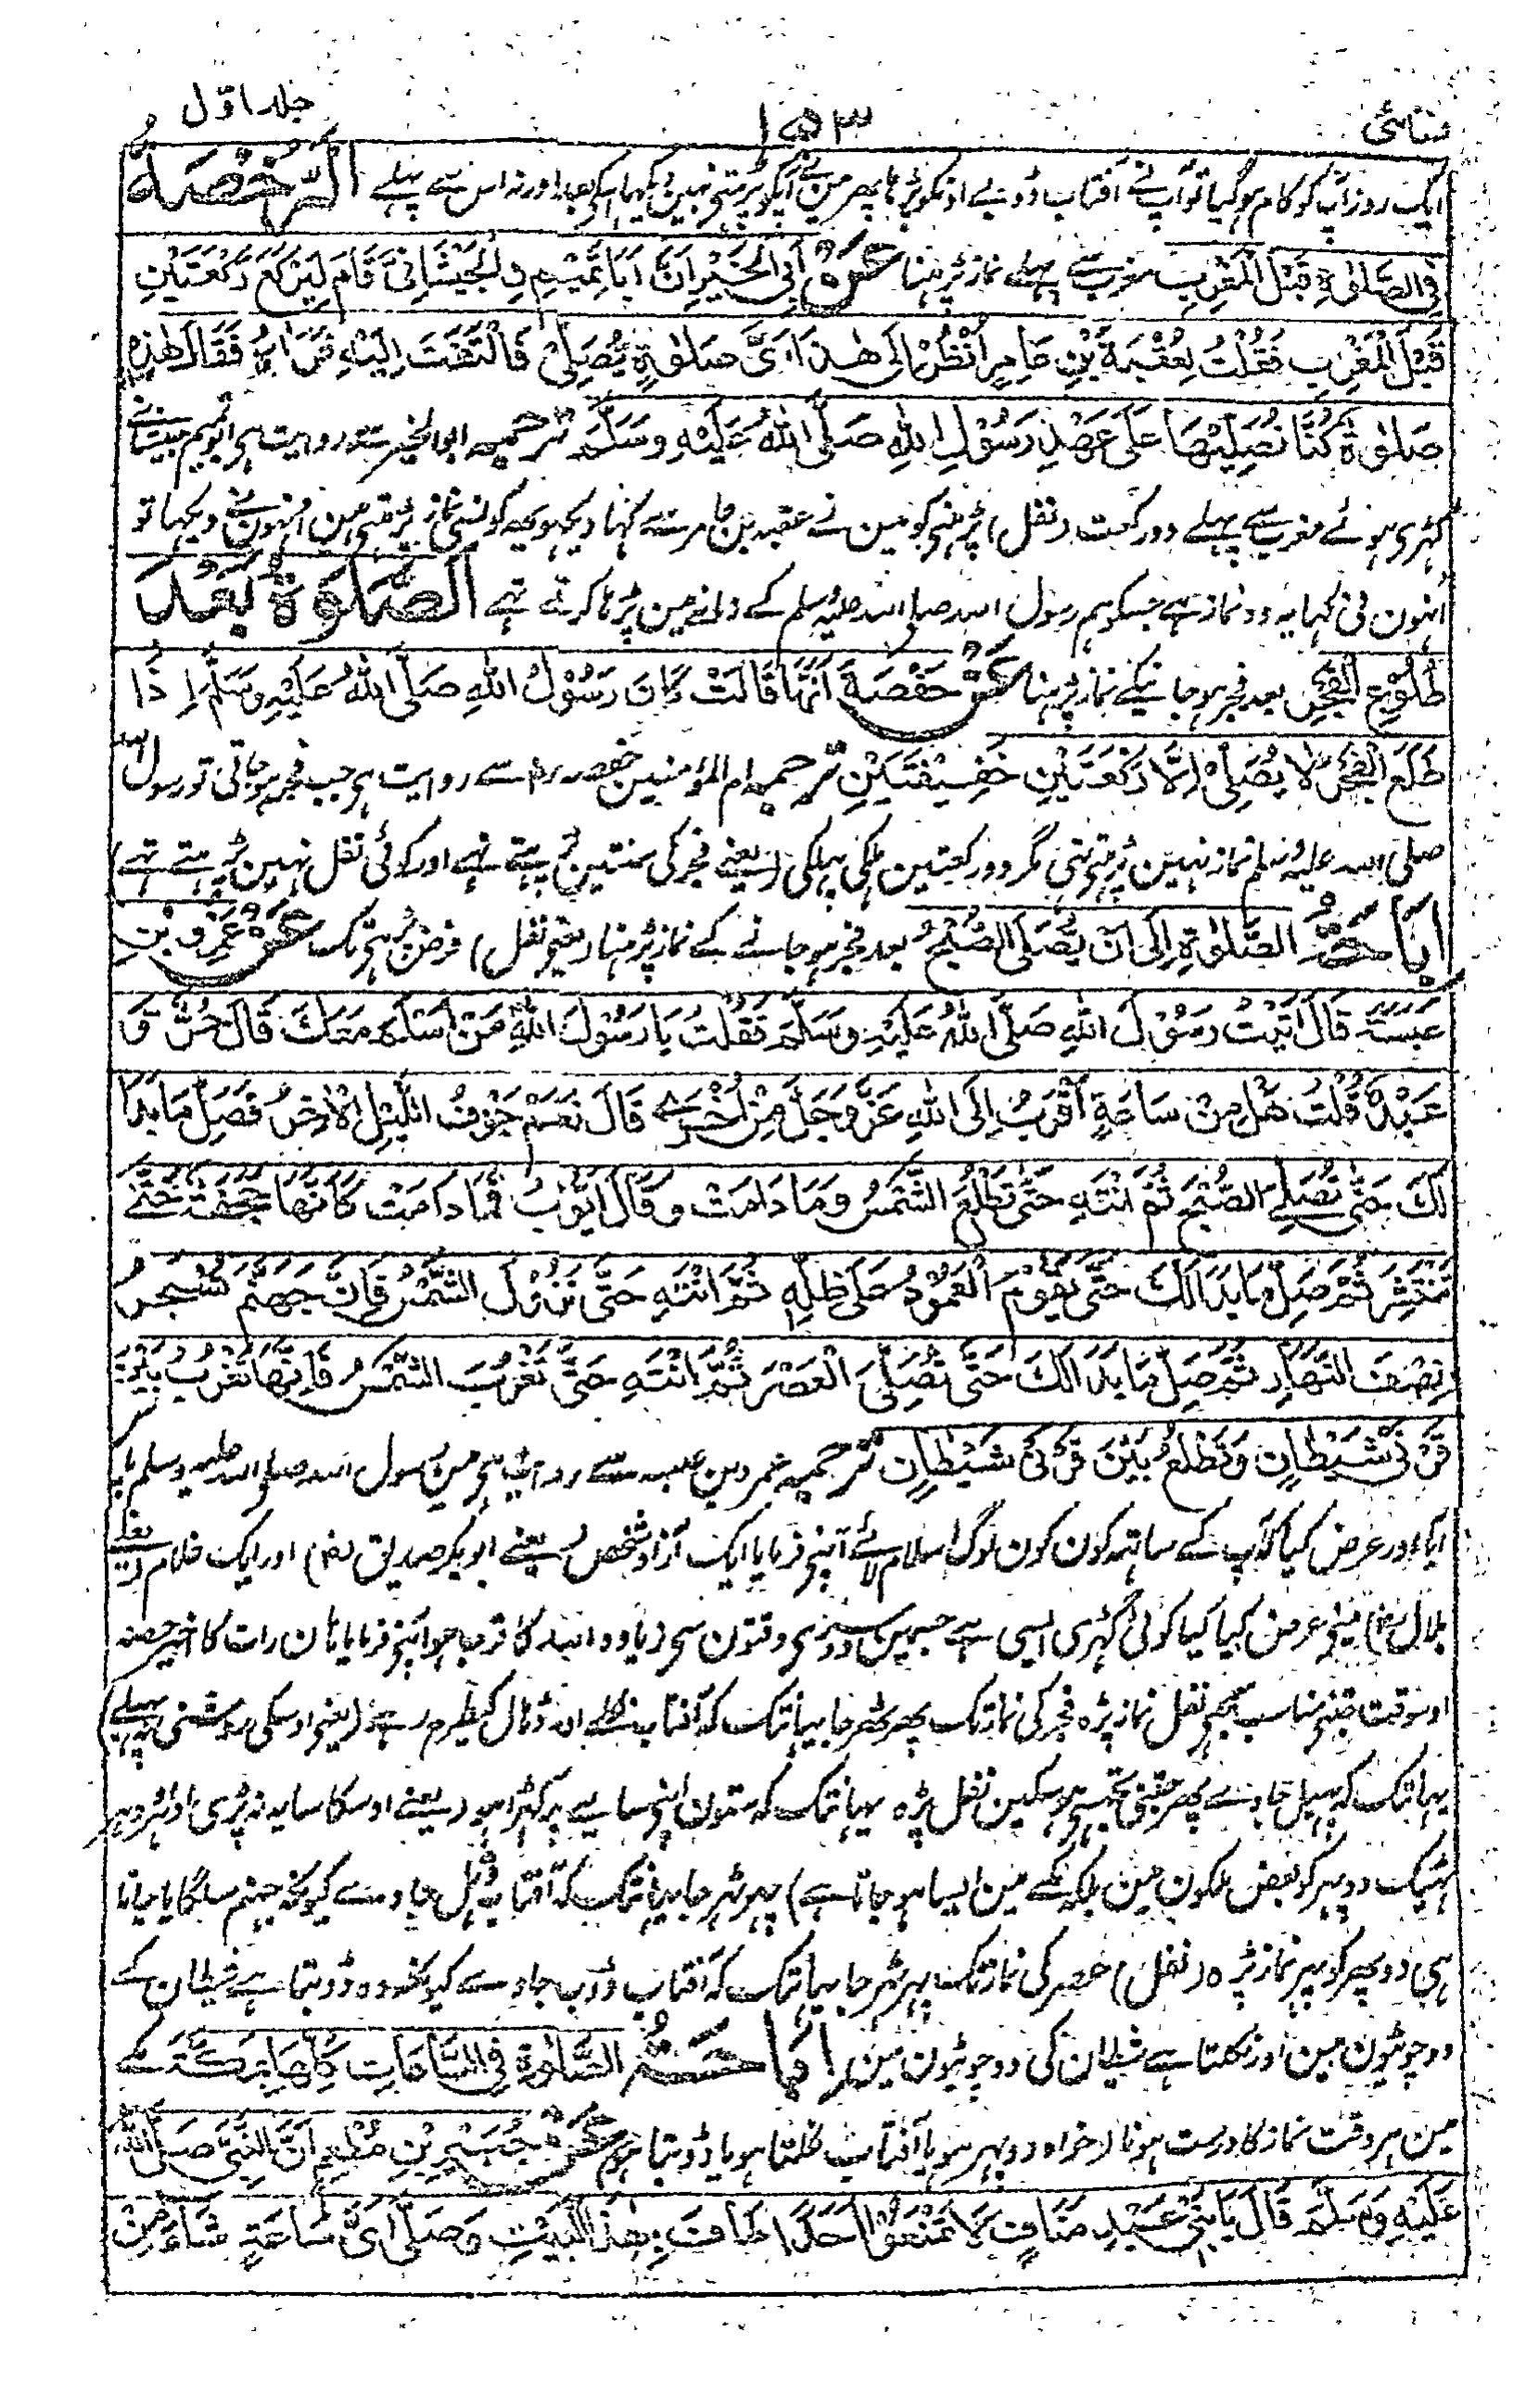 نسائی ۱۵۳ جلد اوّل
ایک روز آپ کو کام ہو گیا تو آپ نے آفتاب ڈوبے اونکو پڑہا پھر مین نے آپکو پڑہتے نہین دیکہا اسکے بعد اور نہ اس سے پہلے اَلرُّخْصَةُ
فِی الصَّلٰوةِ قَبْلَ الْمَغْرِبِ مغرب سے پہلے نماز پڑہنا عَنْ اَبِی الْخَيْرِ اَنَّ اَبَا تَمِيْمٍ الْجَيْشَانِیَّ قَامَ لِيَرْكَعَ رَكْعَتَيْنِ
قَبْلَ الْمَغْرِبِ فَقُلْتُ لِعُقْبَةَ بْنِ عَامِرٍ اُنْظُرْ اِلٰى هٰذَا اَیَّ صَلٰوةٍ يُّصَلِّیْ فَالْتَفَتَ اِلَيْهِ فَرَاٰهُ فَقَالَ هٰذِهٖ
صَلٰوةٌ كُنَّا نُصَلِّيْهَا عَلٰى عَهْدِ رَسُوْلِ اللهِ صَلَّى اللهُ عَلَيْهِ وَسَلَّمَ ترجمہ ابو الخیر سے روایت ہے ابو تمیم جیشانے
کہڑی ہوئے مغرب سے پہلے دو رکعت (نفل) پڑہنے کو مین نے عقبہ بن عامر سے کہا دیکہو یہ کونسی نماز پڑہتے ہین اونہون نے دیکہا تو
اُنہون نی کہا یہ وہ نماز ہے جسکو ہم رسول اللہ صلی اللہ علیہ وسلم کے زمانے مین پڑہا کرتے تہے اَلصَّلٰوةُ بَعْدَ
طُلُوْعِ الْفَجْرِ بعد فجر ہو جانیکے نماز پڑہنا عَنْ حَفْصَةَ اَنَّهَا قَالَتْ كَانَ رَسُوْلُ اللهِ صَلَّى اللهُ عَلَيْهِ وَسَلَّمَ اِذَا
طَلَعَ الْفَجْرُ لَا يُصَلِّیْ اِلَّا رَكْعَتَيْنِ خَفِيْفَتَيْنِ ترجمہ ام المؤمنین حفصہ رض سے روایت ہی جب فجر ہو جاتی تو رسول اللہ
صلی اللہ علیہ وسلم نماز نہین پڑہتے تہی مگر دو رکعتین ہلکی پہلکی (یعنے فجر کی سنتین پڑہتے تہے اور کوئی نفل نہین پڑہتے تہے)
اِبَاحَةُ الصَّلٰوةِ اِلٰى اَنْ يُّصَلَّى الصُّبْحُ بعد فجر ہو جانے کے نماز پڑہنا (یعنے نفل) فرض پڑہے تک عَنْ عَمْرِو بْنِ
عَبَسَةَ قَالَ اَتَيْتُ رَسُوْلَ اللهِ صَلَّى اللهُ عَلَيْهِ وَسَلَّمَ فَقُلْتُ يَا رَسُوْلَ اللهِ مَنْ اَسْلَمَ مَعَكَ قَالَ حُرٌّ وَّ
عَبْدٌ قُلْتُ هَلْ مِنْ سَاعَةٍ اَقْرَبُ اِلَى اللهِ عَزَّ وَجَلَّ مِنْ اُخْرٰى قَالَ نَعَمْ جَوْفُ اللَّيْلِ الْاٰخِرُ فَصَلِّ مَا بَدَا
لَكَ حَتّٰى تُصَلِّیَ الصُّبْحَ ثُمَّ انْتَهِ حَتّٰى تَطْلُعَ الشَّمْسُ وَمَا دَامَتْ وَقَالَ اَيُّوْبُ فَمَا دَامَتْ كَاَنَّهَا حَجَفَةٌ حَتّٰى
تَنْتَشِرَ ثُمَّ صَلِّ مَا بَدَا لَكَ حَتّٰى يَقُوْمَ الْعَمُوْدُ عَلٰى ظِلِّهٖ ثُمَّ انْتَهِ حَتّٰى تَزُوْلَ الشَّمْسُ فَاِنَّ جَهَنَّمَ تُسْجَرُ
نِصْفَ النَّهَارِ ثُمَّ صَلِّ مَا بَدَا لَكَ حَتّٰى تُصَلِّیَ الْعَصْرَ ثُمَّ انْتَهِ حَتّٰى تَغْرُبَ الشَّمْسُ فَاِنَّهَا تَغْرُبُ بَيْنَ
قَرْنَیْ شَيْطَانٍ وَتَطْلُعُ بَيْنَ قَرْنَیْ شَيْطَانٍ ترجمہ عمرو بن عبسہ سے روایت ہے مین رسول اللہ صلی اللہ علیہ وسلم پاس
آیا اور عرض کیا کہ آپ کے ساتہہ کون کون لوگ اسلام لائے آپنے فرمایا ایک آزاد شخص (یعنے ابو بکر صدیق رض) اور ایک غلام (یعنے
بلال رض) مینے عرض کیا کیا کوئی گہڑی ایسی ہے جسمین دوسری وقتون سے زیادہ اللہ کا قرب ہو آپنے فرمایا ہان رات کا اخیر حصہ
اوسوقت جتنے مناسب سمجہے نفل نماز پڑہ فجر کی نماز تک پھر ٹھر جا یہانتک کہ آفتاب نکلے اور ڈہال کیطرح رہے (یعنے اوسکی روشنی نہ پہیلے)
یہانتک کہ پہیل جاوے پھر جتنی تجہسے ہو سکین نفل پڑہ یہانتک کہ ستون اپنے سایے پر کہڑا ہو (یعنے اوسکا سایہ نہ پڑی
ٹہیک دوپہر کو بعض ملکون مین بلکہ مکے مین ایسا ہو جاتا ہے) پہر ٹہر جا یہانتک کہ آفتاب ڈہل جاوے کیونکہ جہنم سلگایا جاتا
ہی دوپہر کو پہر نماز پڑہ (نفل) عصر کی نماز تک پہر ٹہر جا یہانتک کہ آفتاب ڈوب جاوے کیونکہ وہ ڈوبتا ہے شیطان کے
دو چوٹیون مین اور نکلتا ہے شیطان کی دو چوٹیون مین اِبَاحَةُ الصَّلٰوةِ فِی السَّاعَاتِ كُلِّهَا بِمَكَّةَ مکے
مین ہر وقت نماز کا درست ہونا (خواہ دوپہر ہو یا آفتاب نکلتا ہو یا ڈوبتا ہو) عَنْ جُبَيْرِ بْنِ مُطْعِمٍ اَنَّ النَّبِیَّ صَلَّى اللهُ
عَلَيْهِ وَسَلَّمَ قَالَ يَا بَنِیْ عَبْدِ مَنَافٍ لَا تَمْنَعُوْا اَحَدًا طَافَ بِهٰذَا الْبَيْتِ وَصَلّٰى اَیَّ سَاعَةٍ شَاءَ مِنْ